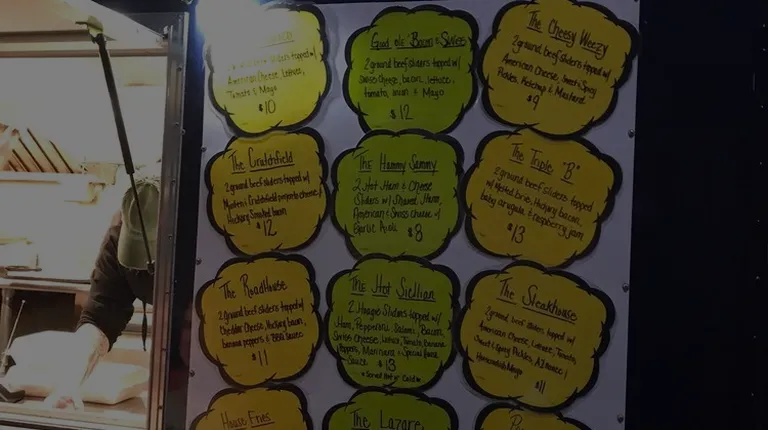 2 ground beef sliders topped w/
American Cheese, Lettuce,
Tomato & Mayo
$10
Good ole Bacon & Swiss
2 ground beef sliders topped w/
Swiss Cheese, bacon, lettuce,
tomato, bacon & Mayo
$12
The Cheesy Weezy
2 ground beef Sliders topped w/
American Cheese, Sweet & Spicy
Pickles, Ketchup & Mustard
$9
The Crutchfield
2 ground beef sliders topped w/
Crutchfield pimento cheese /
Hickory Smoked bacon
$12
The Hammy Sammy
2 Hot Ham & Cheese
Sliders w/ Shaved Ham,
American & Swiss Cheese w/
Garlic Aioli
$8
The Triple "B"
2 ground beef Sliders topped
w/ Melted brie, Hickory bacon,
baby arugula & raspberry jam
$13
The RoadHouse
2 ground beef sliders topped w/
Cheddar Cheese, Hickory bacon,
banana peppers & BBQ Sauce
$11
The Hot Sicilian
2 Hoagie Sliders topped w/
Ham, Pepperoni, Salami, Bacon,
Swiss Cheese, Lettuce, Tomato, Banana
Peppers, Marinara & Special
Sauce $13
* Served Hot or Cold *
The Steakhouse
2 ground beef sliders topped w/
American Cheese, Lettuce, Tomato,
Sweet & Spicy Pickles, A1 Sauce /
Homemade Mayo
$11
House Fries
The Lazare